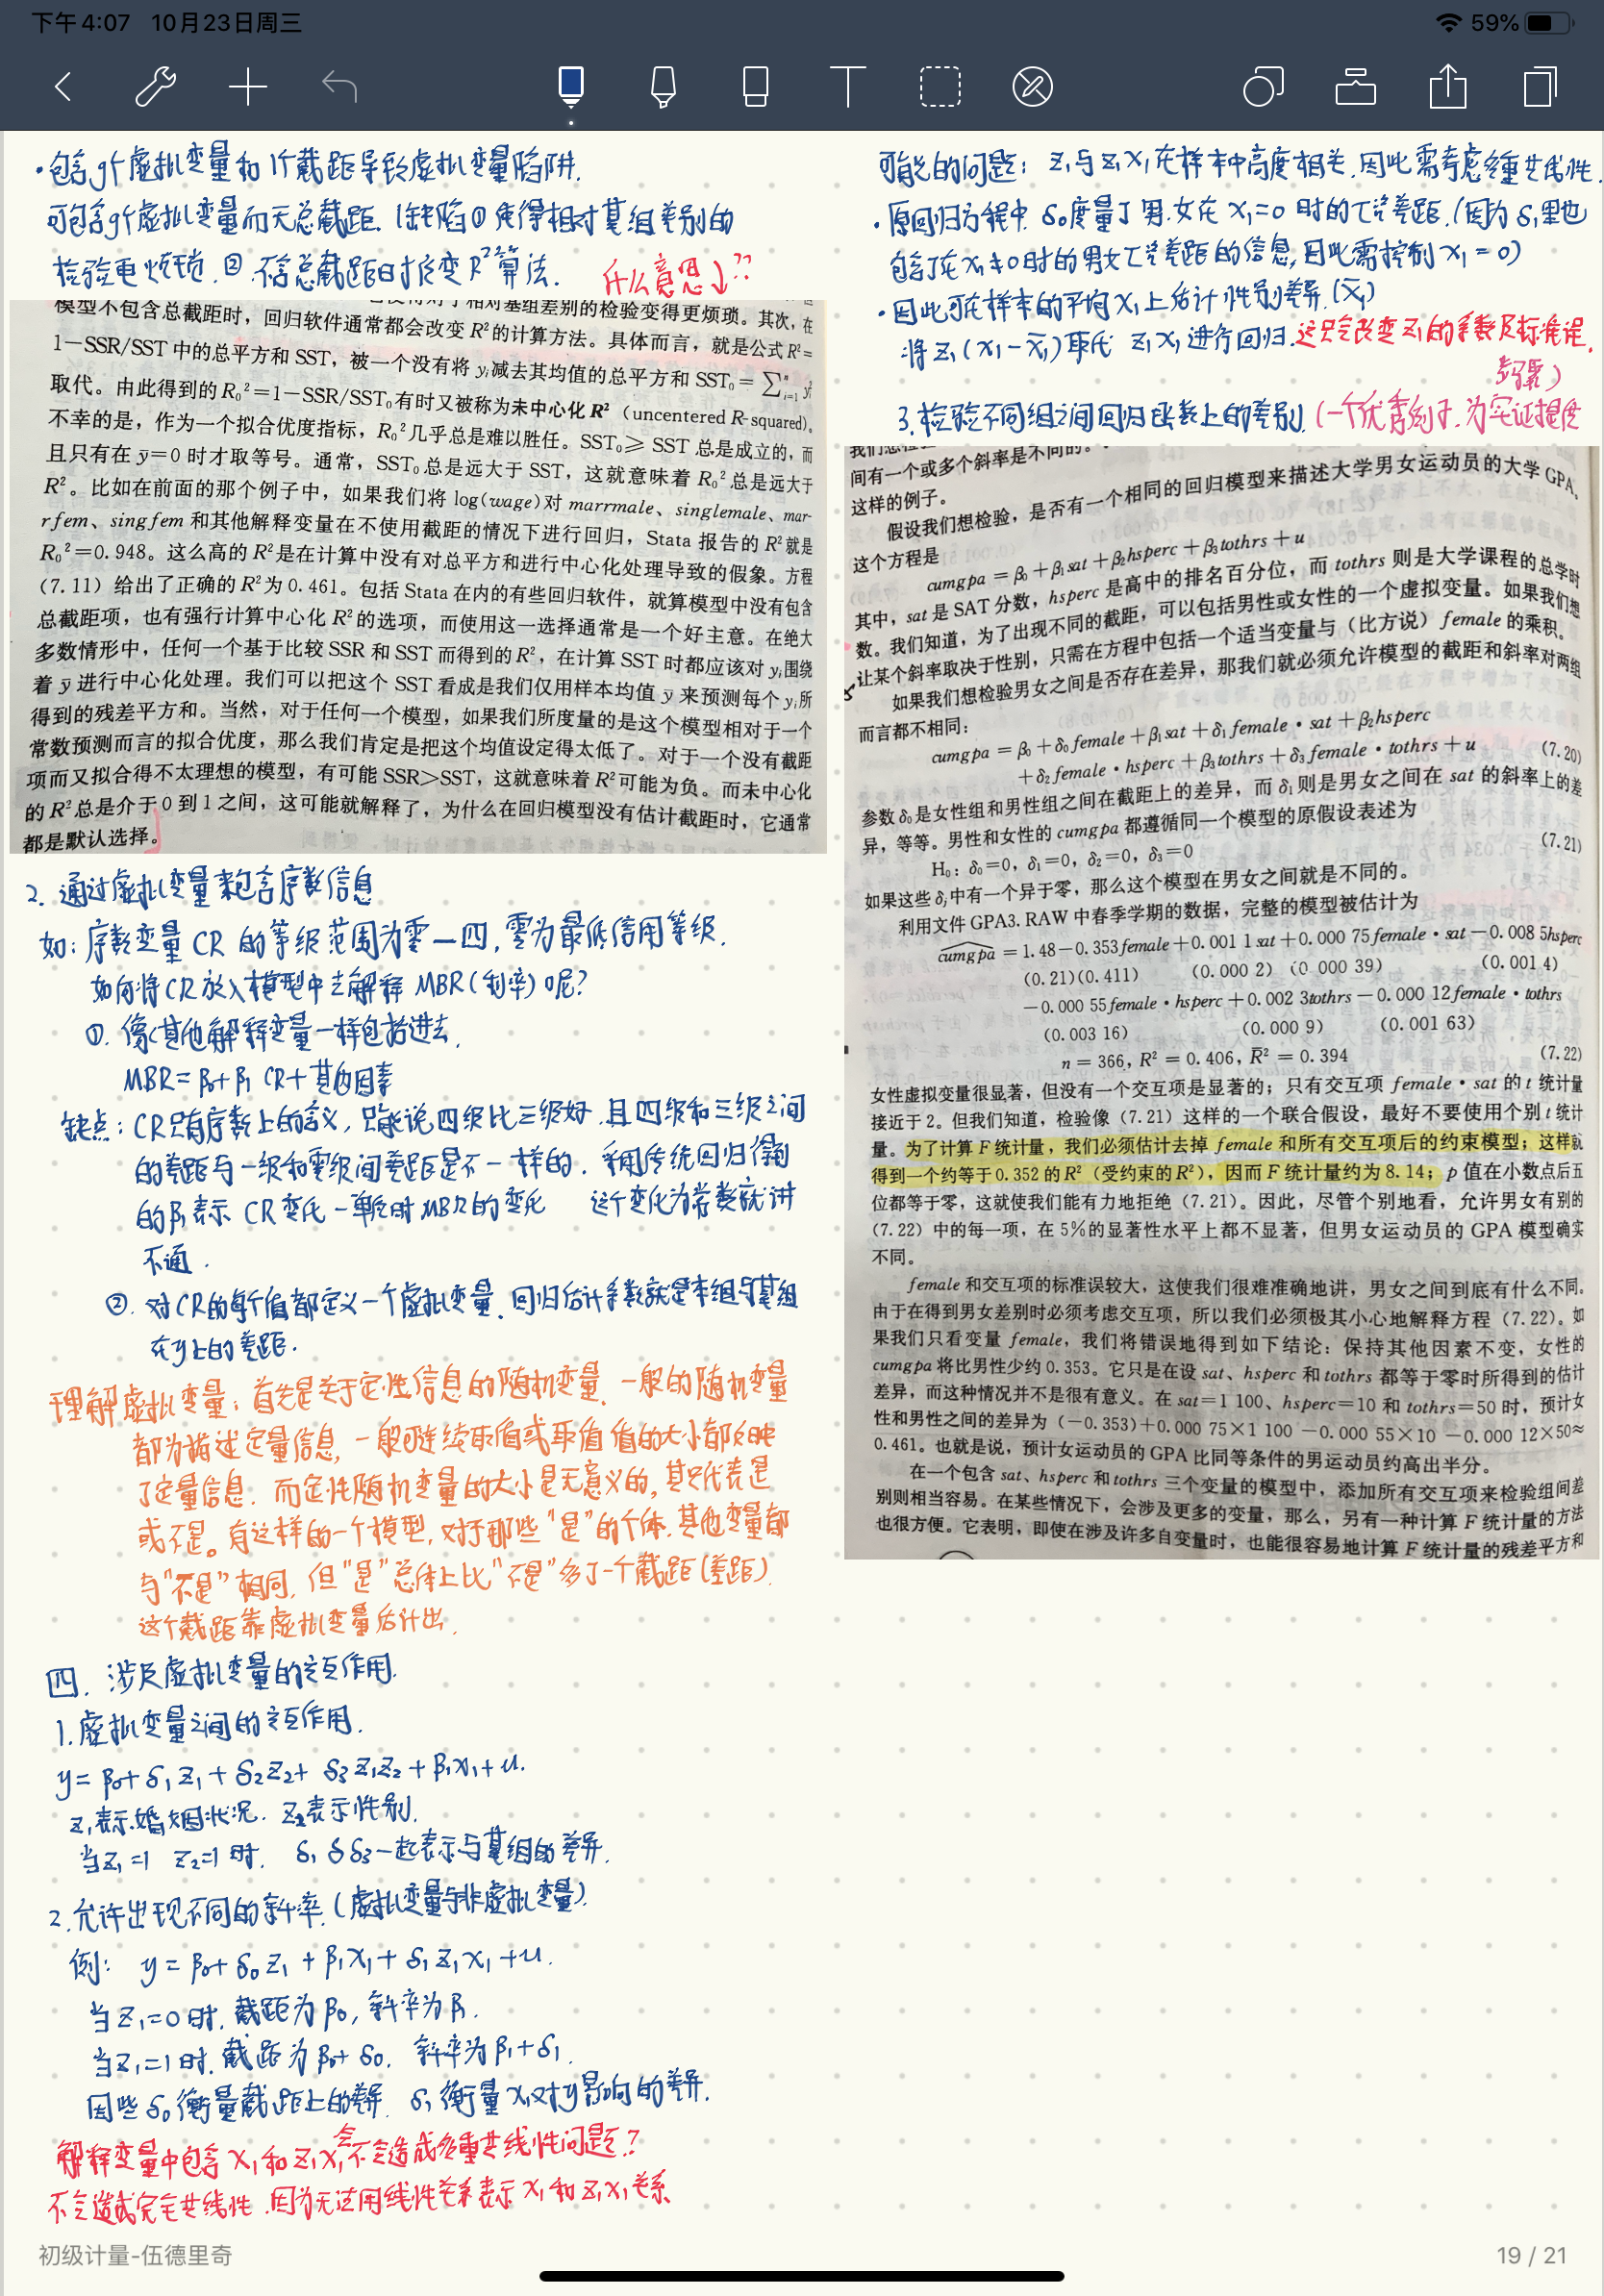 下午4:07 10月23日周三
59%
·包含g个虚拟变量和1个截距导致虚拟变量陷阱.
可包含g个虚拟变量而无总截距. 缺陷①使得相对基组差别的
检验更烦琐. ②.不含总截距时改变R²算法. 什么意思↓??
模型不包含总截距时，回归软件通常都会改变 R²的计算方法。具体而言，就是公式 R²=
1-SSR/SST 中的总平方和 SST，被一个没有将 yᵢ减去其均值的总平方和 SST₀=∑ⁿᵢ₌₁ y²ᵢ
取代。由此得到的R₀²=1-SSR/SST₀有时又被称为未中心化R²（uncentered R-squared）。
不幸的是，作为一个拟合优度指标，R₀²几乎总是难以胜任。SST₀≥SST 总是成立的，而
且只有在 ȳ=0 时才取等号。通常，SST₀总是远大于 SST，这就意味着 R₀²总是远大于
R²。比如在前面的那个例子中，如果我们将 log(wage)对 marrmale、singlemale、mar-
rfem、singfem 和其他解释变量在不使用截距的情况下进行回归，Stata 报告的 R²就是
R₀²=0.948。这么高的 R²是在计算中没有对总平方和进行中心化处理导致的假象。方程
(7.11) 给出了正确的 R²为 0.461。包括 Stata 在内的有些回归软件，就算模型中没有包含
总截距项，也有强行计算中心化 R²的选项，而使用这一选择通常是一个好主意。在绝大
多数情形中，任何一个基于比较 SSR 和 SST 而得到的 R²，在计算 SST 时都应该对 yᵢ围绕
着 ȳ 进行中心化处理。我们可以把这个 SST 看成是我们仅用样本均值 ȳ 来预测每个 yᵢ所
得到的残差平方和。当然，对于任何一个模型，如果我们所度量的是这个模型相对于一个
常数预测而言的拟合优度，那么我们肯定是把这个均值设定得太低了。对于一个没有截距
项而又拟合得不太理想的模型，有可能 SSR>SST，这就意味着 R²可能为负。而未中心化
的 R²总是介于 0 到 1 之间，这可能就解释了，为什么在回归模型没有估计截距时，它通常
都是默认选择。
2. 通过虚拟变量来包含序数信息
如：序数变量 CR 的等级范围为零—四，零为最低信用等级.
如何将CR放入模型中去解释 MBR(利率)呢?
①. 像其他解释变量一样包括进去.
MBR=β₀+β₁ CR+其他因素
缺点：CR只有序数上的含义，只能说四级比三级好.且四级和三级之间
的差距与一级和零级间差距是不一样的. 采用传统回归得到
的β₁表示 CR变化一单位时MBR的变化 这个变化为常数就讲
不通.
②. 对CR的每个值都定义一个虚拟变量.回归估计系数就是本组与基组
在y上的差距.
理解虚拟变量：首先是关于定性信息的随机变量. 一般的随机变量
都为描述定量信息，一般可连续取值或取值 值的大小都反映
了定量信息. 而定性随机变量的大小是无意义的，其只代表是
或不是。有这样的一个模型，对于那些"是"的个体.其他变量都
与"不是"相同，但"是"总体上比"不是"多了一个截距(差距).
这个截距靠虚拟变量估计出.
四. 涉及虚拟变量的交互作用.
1.虚拟变量之间的交互作用.
y= β₀+ δ₁ z₁ + δ₂z₂+ δ₃ z₁z₂ + β₁x₁+ u.
z₁表示婚姻状况. z₂表示性别.
当z₁=1 z₂=1时. δ₁ δ δ₃一起表示与基组的差异.
2.允许出现不同的斜率.(虚拟变量与非虚拟变量)
例: y = β₀+ δ₀ z₁ + β₁x₁+ δ₁ z₁x₁ +u.
当z₁=0时.截距为β₀, 斜率为β₁.
当z₁=1时.截距为β₀+δ₀. 斜率为β₁+δ₁.
因此δ₀衡量截距上的差异. δ₁衡量x₁对y影响的差异.
解释变量中包含x₁和z₁x₁会不会造成多重共线性问题?
不会造成完全共线性.因为无法用线性关系表示x₁和z₁x₁关系
可能的问题: z₁与z₁x₁在样本中高度相关.因此需考虑多重共线性.
·原回归方程中 δ₀度量了男.女在x₁=0时的工资差距.(因为δ₁里也
包含了在x₁≠0时的男女工资差距的信息,因此需控制x₁=0)
·因此可在样本的平均x₁上估计性别差异.(x̄₁)
将z₁(x₁-x̄₁)取代 z₁x₁进行回归.这只会改变z₁的系数及标准误.
3.检验不同组之间回归函数上的差别.(一个优秀例子.为实证提供
步骤)
间有一个或多个斜率是不同的。
这样的例子。
假设我们想检验，是否有一个相同的回归模型来描述大学男女运动员的大学 GPA。
这个方程是
cumgpa = β₀ + β₁sat + β₂hsperc + β₃tothrs + u
其中，sat 是 SAT 分数，hsperc 是高中的排名百分位，而 tothrs 则是大学课程的总学时
数。我们知道，为了出现不同的截距，可以包括男性或女性的一个虚拟变量。如果我们想
让某个斜率取决于性别，只需在方程中包括一个适当变量与（比方说）female 的乘积。
如果我们想检验男女之间是否存在差异，那我们就必须允许模型的截距和斜率对两组
而言都不相同：
cumgpa = β₀ + δ₀female + β₁sat + δ₁female・sat + β₂hsperc
+ δ₂female・hsperc + β₃tothrs + δ₃female・tothrs + u (7.20)
参数 δ₀是女性组和男性组之间在截距上的差异，而 δ₁则是男女之间在 sat 的斜率上的差
异，等等。男性和女性的 cumgpa 都遵循同一个模型的原假设表述为
H₀: δ₀=0, δ₁=0, δ₂=0, δ₃=0 (7.21)
如果这些 δⱼ中有一个异于零，那么这个模型在男女之间就是不同的。
利用文件 GPA3. RAW 中春季学期的数据，完整的模型被估计为
cumgpa = 1.48-0.353female+0.001 1sat+0.000 75female・sat-0.008 5hsperc
(0.21)(0.411) (0.000 2) (0.000 39) (0.001 4)
-0.000 55female・hsperc+0.002 3tothrs-0.000 12female・tothrs
(0.003 16) (0.000 9) (0.001 63)
n = 366, R² = 0.406, R̄² = 0.394 (7.22)
女性虚拟变量很显著，但没有一个交互项是显著的；只有交互项 female・sat 的 t 统计量
接近于 2。但我们知道，检验像 (7.21) 这样的一个联合假设，最好不要使用个别 t 统计
量。为了计算 F 统计量，我们必须估计去掉 female 和所有交互项后的约束模型；这样就
得到一个约等于 0.352 的 R²（受约束的 R²），因而 F 统计量约为 8.14；p 值在小数点后五
位都等于零，这就使我们能有力地拒绝 (7.21)。因此，尽管个别地看，允许男女有别的
(7.22) 中的每一项，在 5%的显著性水平上都不显著，但男女运动员的 GPA 模型确实
不同。
female 和交互项的标准误较大，这使我们很难准确地讲，男女之间到底有什么不同。
由于在得到男女差别时必须考虑交互项，所以我们必须极其小心地解释方程 (7.22)。如
果我们只看变量 female，我们将错误地得到如下结论：保持其他因素不变，女性的
cumgpa 将比男性少约 0.353。它只是在设 sat、hsperc 和 tothrs 都等于零时所得到的估计
差异，而这种情况并不是很有意义。在 sat=1 100、hsperc=10 和 tothrs=50 时，预计女
性和男性之间的差异为 (-0.353)+0.000 75×1 100 -0.000 55×10 -0.000 12×50≈
0.461。也就是说，预计女运动员的 GPA 比同等条件的男运动员约高出半分。
在一个包含 sat、hsperc 和 tothrs 三个变量的模型中，添加所有交互项来检验组间差
别则相当容易。在某些情况下，会涉及更多的变量，那么，另有一种计算 F 统计量的方法
也很方便。它表明，即使在涉及许多自变量时，也能很容易地计算 F 统计量的残差平方和
初级计量-伍德里奇
19 / 21